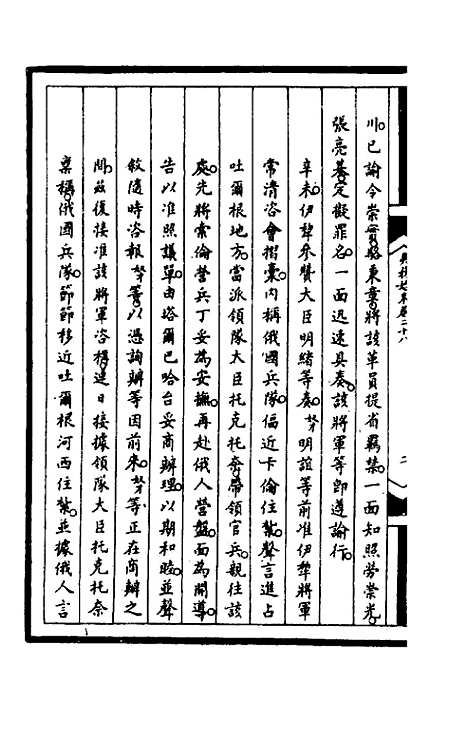 川。已諭令崇實駱秉章。將該革員提省羈禁。一面知照勞崇光。
張亮基。定擬罪名。一面迅速具奏。該將軍等即遵諭行。
辛未。伊犂參贊大臣明緒等奏。奴才明誼等前准伊犂將軍
常清咨會摺稾。內稱俄國兵隊。偪近卡倫住紮。聲言進占
吐爾根地方。當派領隊大臣托克托奈。帶領官兵。親往該
處。先將索倫營兵丁妥為安撫。再赴俄人營盤。面為開導。
告以准照議單。由塔爾巴哈台妥商辦理。以期和睦。並聲
敘隨時咨報奴才等。以憑詢辦等因前來。奴才等正在商辦之
間。茲復接准該將軍咨稱。連日接據領隊大臣托克托奈
稟稱。俄國兵隊。節節移近吐爾根河西住紮。並據俄人言